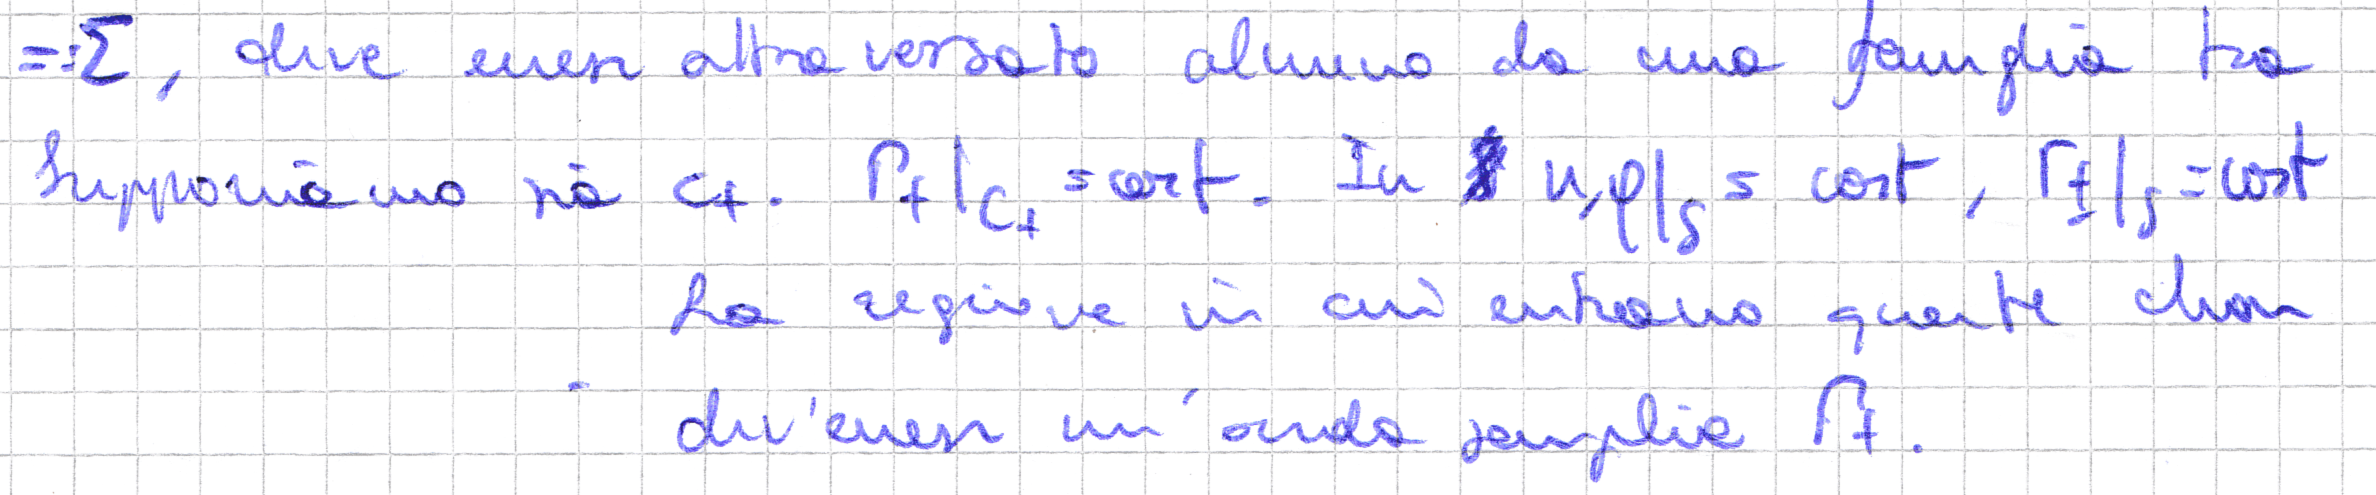 =:Σ, deve essere attraversato almeno da una famiglia tra
Supponiamo sia C₊. Γ₊|_C₊ = cost. In S u,ρ|_S = cost, Γ_±|_S = cost
La regione in cui entrano queste
dev'essere un'onda semplice Γ₊.